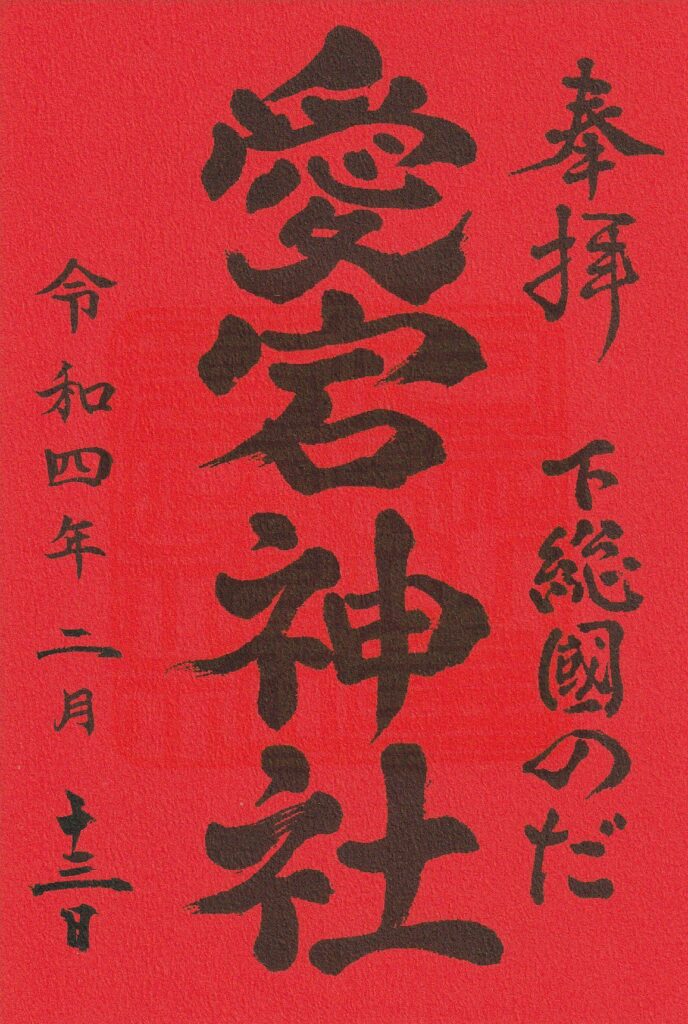 奉拝
下総國のだ
愛宕神社
令和四年二月十三日